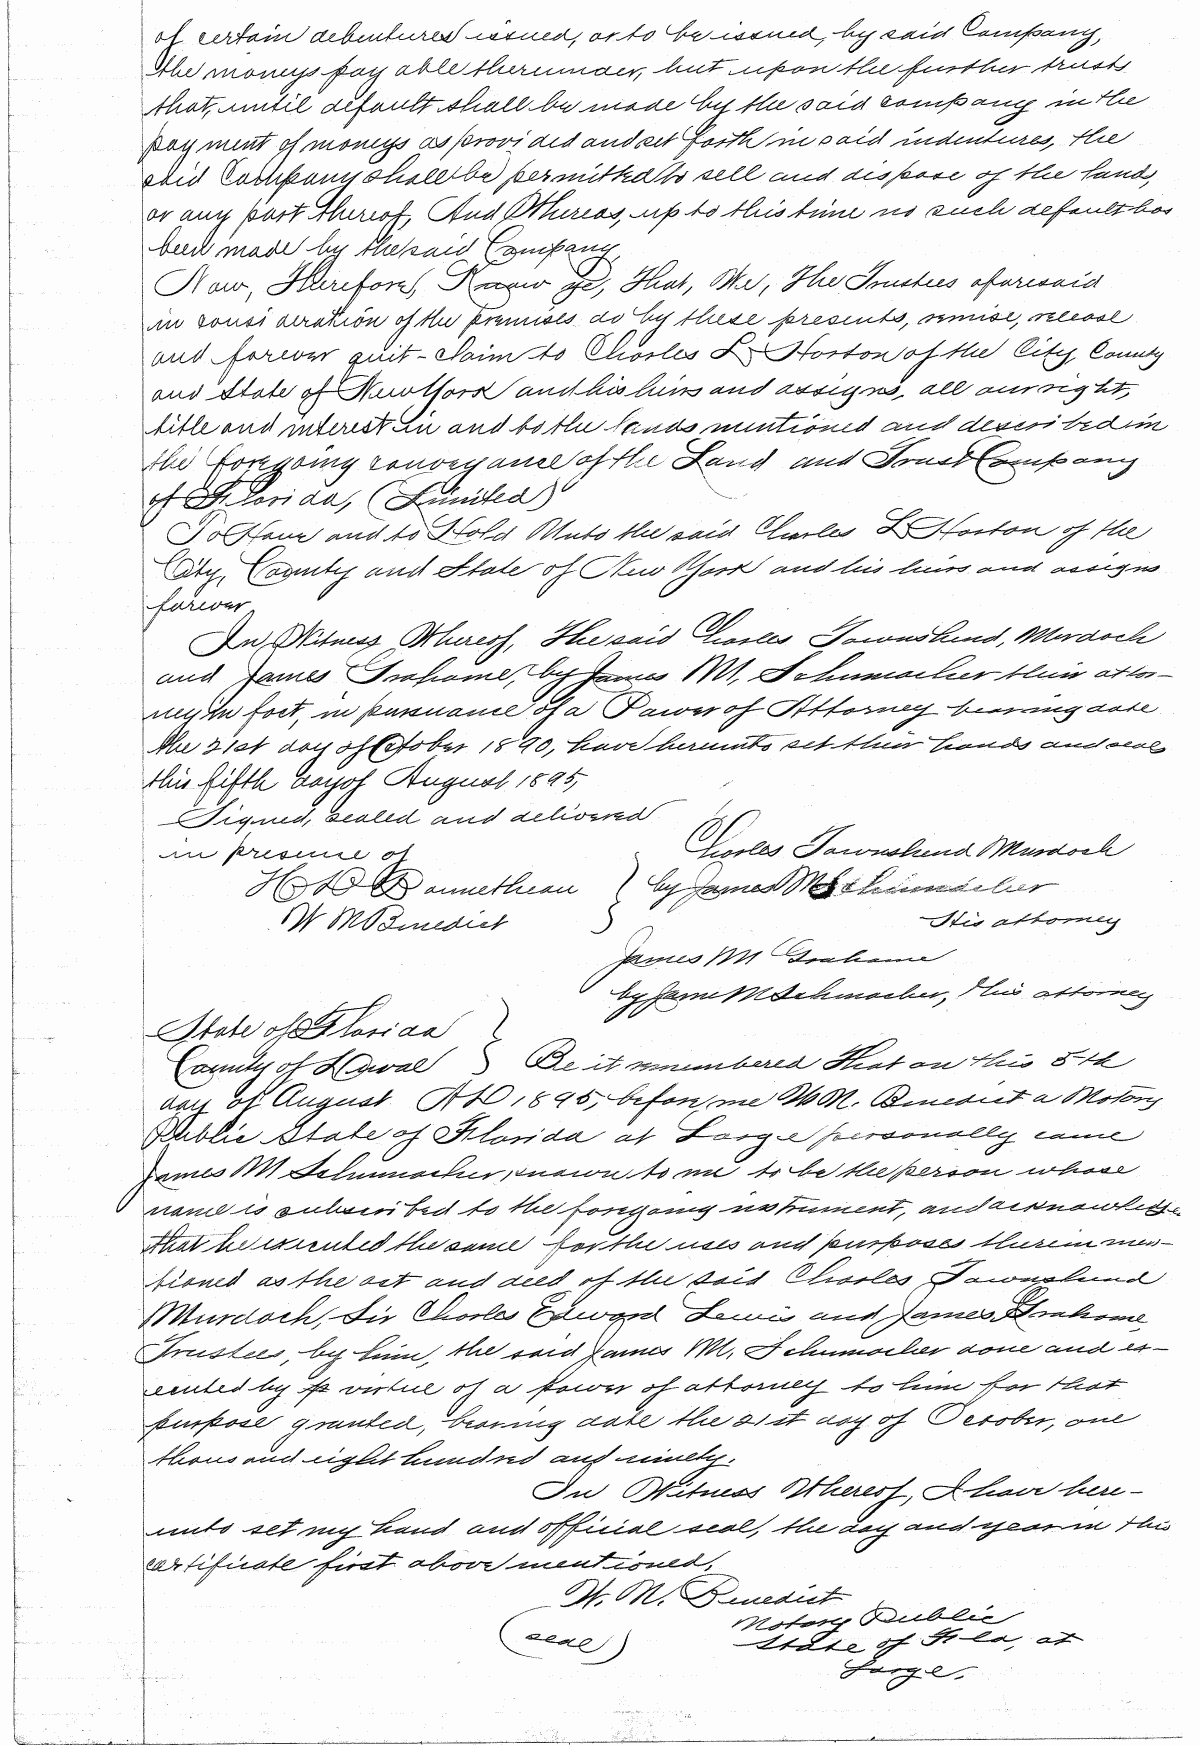 of certain debentures issued, or to be issued, by said Company,
the moneys payable thereunder, but upon the further trusts
that, until default shall be made by the said company in the
payment of moneys as provided and set forth in said indentures, the
said Company shall be permitted to sell and dispose of the lands,
or any part thereof, And Whereas, up to this time no such default has
been made by the said Company,
Now, Therefore, Know ye, That, We, The Trustees aforesaid
in consideration of the premises do by these presents, remise, release
and forever quit-claim to Charles L. Horton of the City, County
and State of New York and his heirs and assigns, all our right,
title and interest in and to the lands mentioned and described in
the foregoing conveyance of the Land and Trust Company
of Florida, (Limited)
To Have and to Hold Unto the said Charles L Horton of the
City, County and State of New York and his heirs and assigns
forever
In Witness Whereof, The said Charles Townshend, Murdoch
and James Grahame, by James M, Schumacher their attor-
ney in fact, in pursuance of a Power of Attorney bearing date
the 21st day of October 1890, have hereunto set their hands and seals
this fifth day of August 1895,
Signed, sealed and delivered
in presence of
Charles Townshend Murdoch
H D
by James M Schumacher
W M Benedict
His attorney
James M Grahame
by James M Schumacher, his attorney
State of Florida
County of Duval } Be it remembered That on this 5th
day of August AD 1895, before me W M. Benedict a Notary
Public State of Florida at Large personally came
James M Schumacher, known to me to be the person whose
name is subscribed to the foregoing instrument, and acknowledge
that he executed the same for the uses and purposes therein men-
tioned as the act and deed of the said Charles Townshend
Murdoch, Sir Charles Edward Lewis and James Grahame,
Trustees, by him, the said James M. Schumacher done and ex-
ecuted by virtue of a power of attorney to him for that
purpose granted, bearing date the 21st day of October, one
thousand eight hundred and ninety.
In Witness Whereof, I have here-
unto set my hand and official seal, the day and year in this
certificate first above mentioned,
W. M. Benedict
Notary Public
(seal) State of Fla, at
Large.